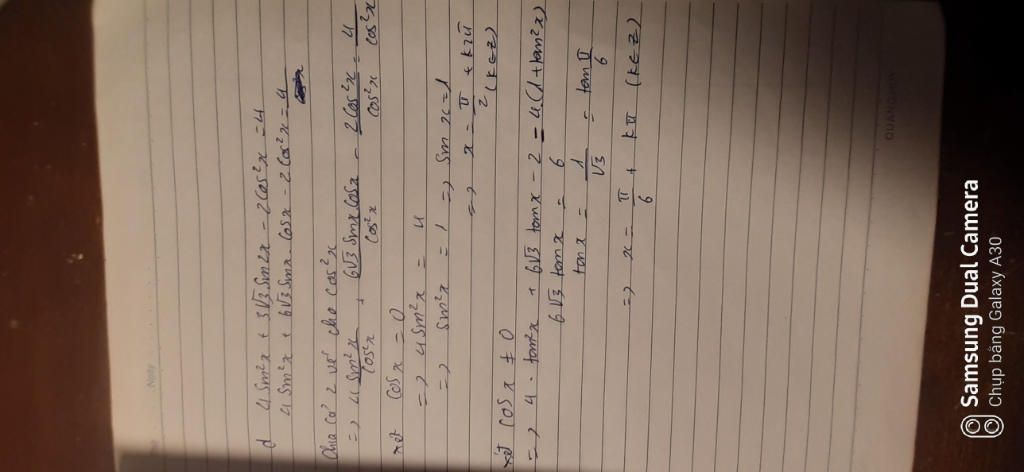 Ngày
d 4 sin²x + 3√3 sin2x - 2cos²x = 4
4 sin²x + 6√3 sinx . cosx - 2cos²x = 4
Chia cả 2 vế cho cos²x
=> 4 sin²x/cos²x + 6√3 sinx cosx/cos²x - 2cos²x/cos²x = 4/cos²x
xét cosx = 0
=> 4 sin²x = 4
=> sin²x = 1 => sinx = 1
=> x = π/2 + k2π (k∈Z)
xét cosx ≠ 0
=> 4 . tan²x + 6√3 tanx - 2 = 4(1+tan²x)
6√3 tanx = 6
tanx = 1/√3 = tan π/6
=> x = π/6 + kπ (k∈Z)
Samsung Dual Camera
Chụp bằng Galaxy A30